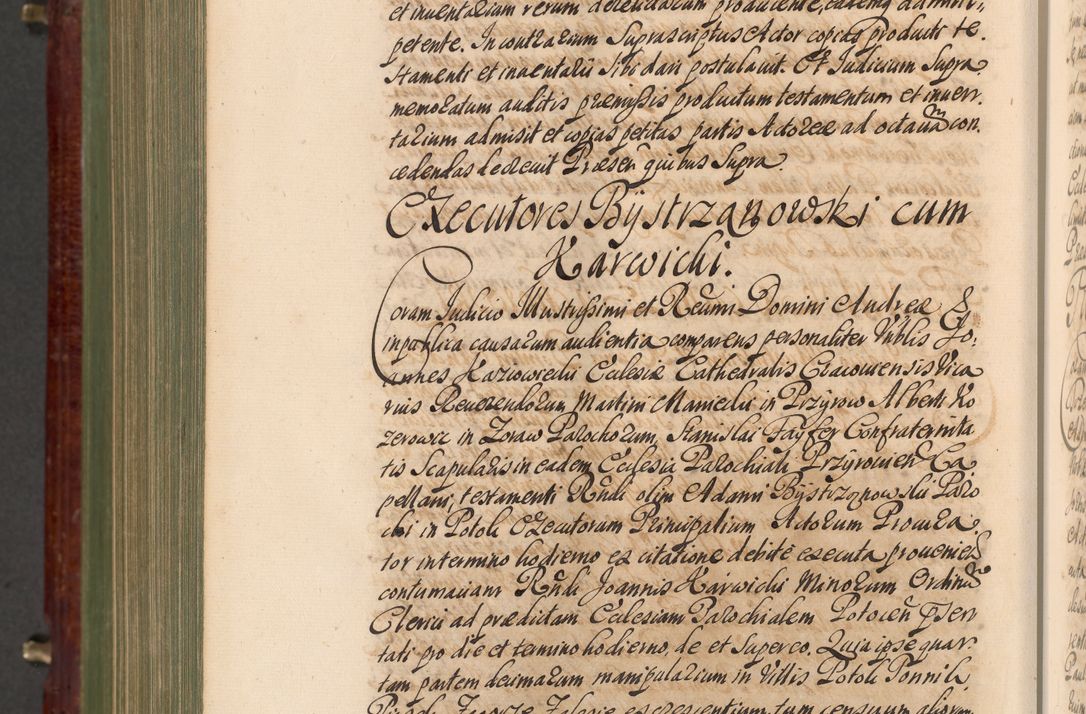 et inuentarium rerum derelictarum producente, eademq admitti
petente. In contrarium Suprascriptus Actor copias producti te.
stamenti et inuentarii sibi dari postulauit. Et Iudicium Supra
memoratum auditis præmissis productum testamentum et inuen.
tarium admisit et copias petitas partis Actoreæ ad octauam con.
cedendas decreuit Præsen quibus Supra.
Executores Bÿstrzanowski cum
Karwicki.
Coram Iudicio Illustrissimi et Reumi Domini Andreæ &
in publica causarum audientia comparens personaliter Nblis Jo:
annes Kazwowiecki Ecclesiæ Cathedralis Cracouiensis Vica
rius Reuerendorum Martini Maniecki in Przyrow Alberti Ko
zerowic in Zoraw Parochorum, Stanislai Fayfer Confraternita
tis Scapularis in eadem Ecclesia Parochiali Przyrouien Ca
pellani, testamenti Rndi olim Adami Bÿstrzonowskii Paro
chi in Potok Executorum Principalium Actorum Procura
tor in termino hodierno ex citatione debite executa proueniens
contumaciam Rndi Joannis Karwicki Minorum Ordinum
Clerici ad prædictam Ecclesiam Parochialem Potocen Præsen
tati pro die et termino hodierno, de et Super eo. Quia ipse quar
tam partem decimarum manipularium in Villis Potok Ponnik